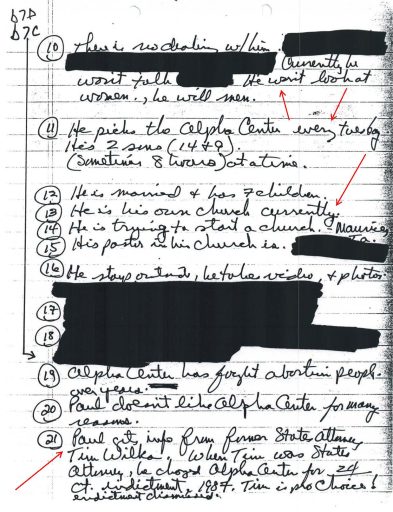 b7D
b7C
(10) There is no dealing w/ him.
Currently he
won't talk He won't look at
women., he will men.
(11) He picks the Alpha Center every Tuesday
He's 2 sons (14 + 9).
(Sometimes 8 hours) at a time.
(12) He is married + has 7 children.
(13) He is his own church currently.
(14) He is trying to start a church. - Maurice,
Ia.
(15) His pastor in his church is.
(16) He stays outside, he take video, + photos
(17)
(18)
(19) Alpha Center has fought abortion people
over years.
(20) Paul doesn't like Alpha Center for many
reasons.
(21) Paul gets info from former State Attorney
Tim Wilka. When Tim was States
Attorney, he charged Alpha Center for 24
Ct. indictment, 1987. Tim is pro Choice!
indictment dismissed.